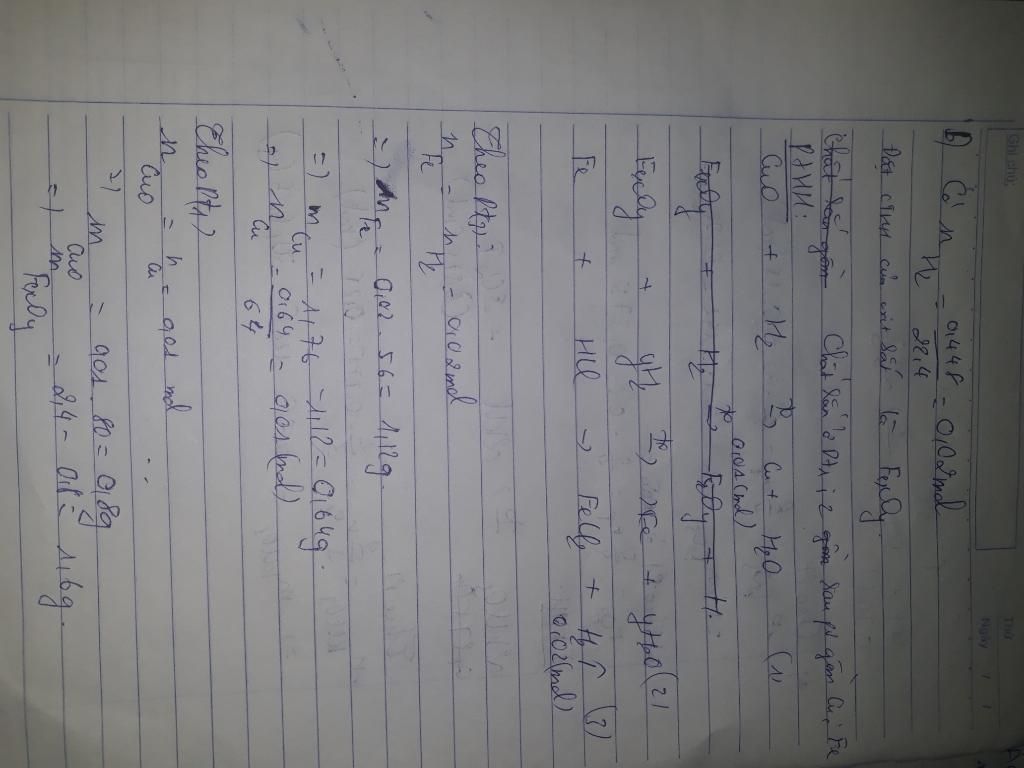 Ghi chú
Thứ
Ngày / /
b) Có n H2 = 0,448 / 22,4 = 0,02 mol
Đặt cthh của oxit sắt là FexOy
Chất rắn gồm Chất rắn ở Pt1 + 2 gồm sau pứ gồm Cu, Fe
PTHH:
CuO + H2 t° → Cu + H2O (1)
0,01 (mol)
FexOy + H2 t° → FexOy + H2
FexOy + yH2 t° → xFe + yH2O (2)
Fe + HCl → FeCl2 + H2 ↑ (3)
0,02 (mol)
Theo Pt3
n Fe = n H2 = 0,02 mol
=) m Fe = 0,02 . 56 = 1,12 g
=) m Cu = 1,76 - 1,12 = 0,64 g.
=) n Cu = 0,64 / 64 = 0,01 (mol)
Theo Pt1)
n CuO = n Cu = 0,01 mol
=) m CuO = 0,01 . 80 = 0,8 g
=) m FexOy = 2,4 - 0,8 = 1,6 g.